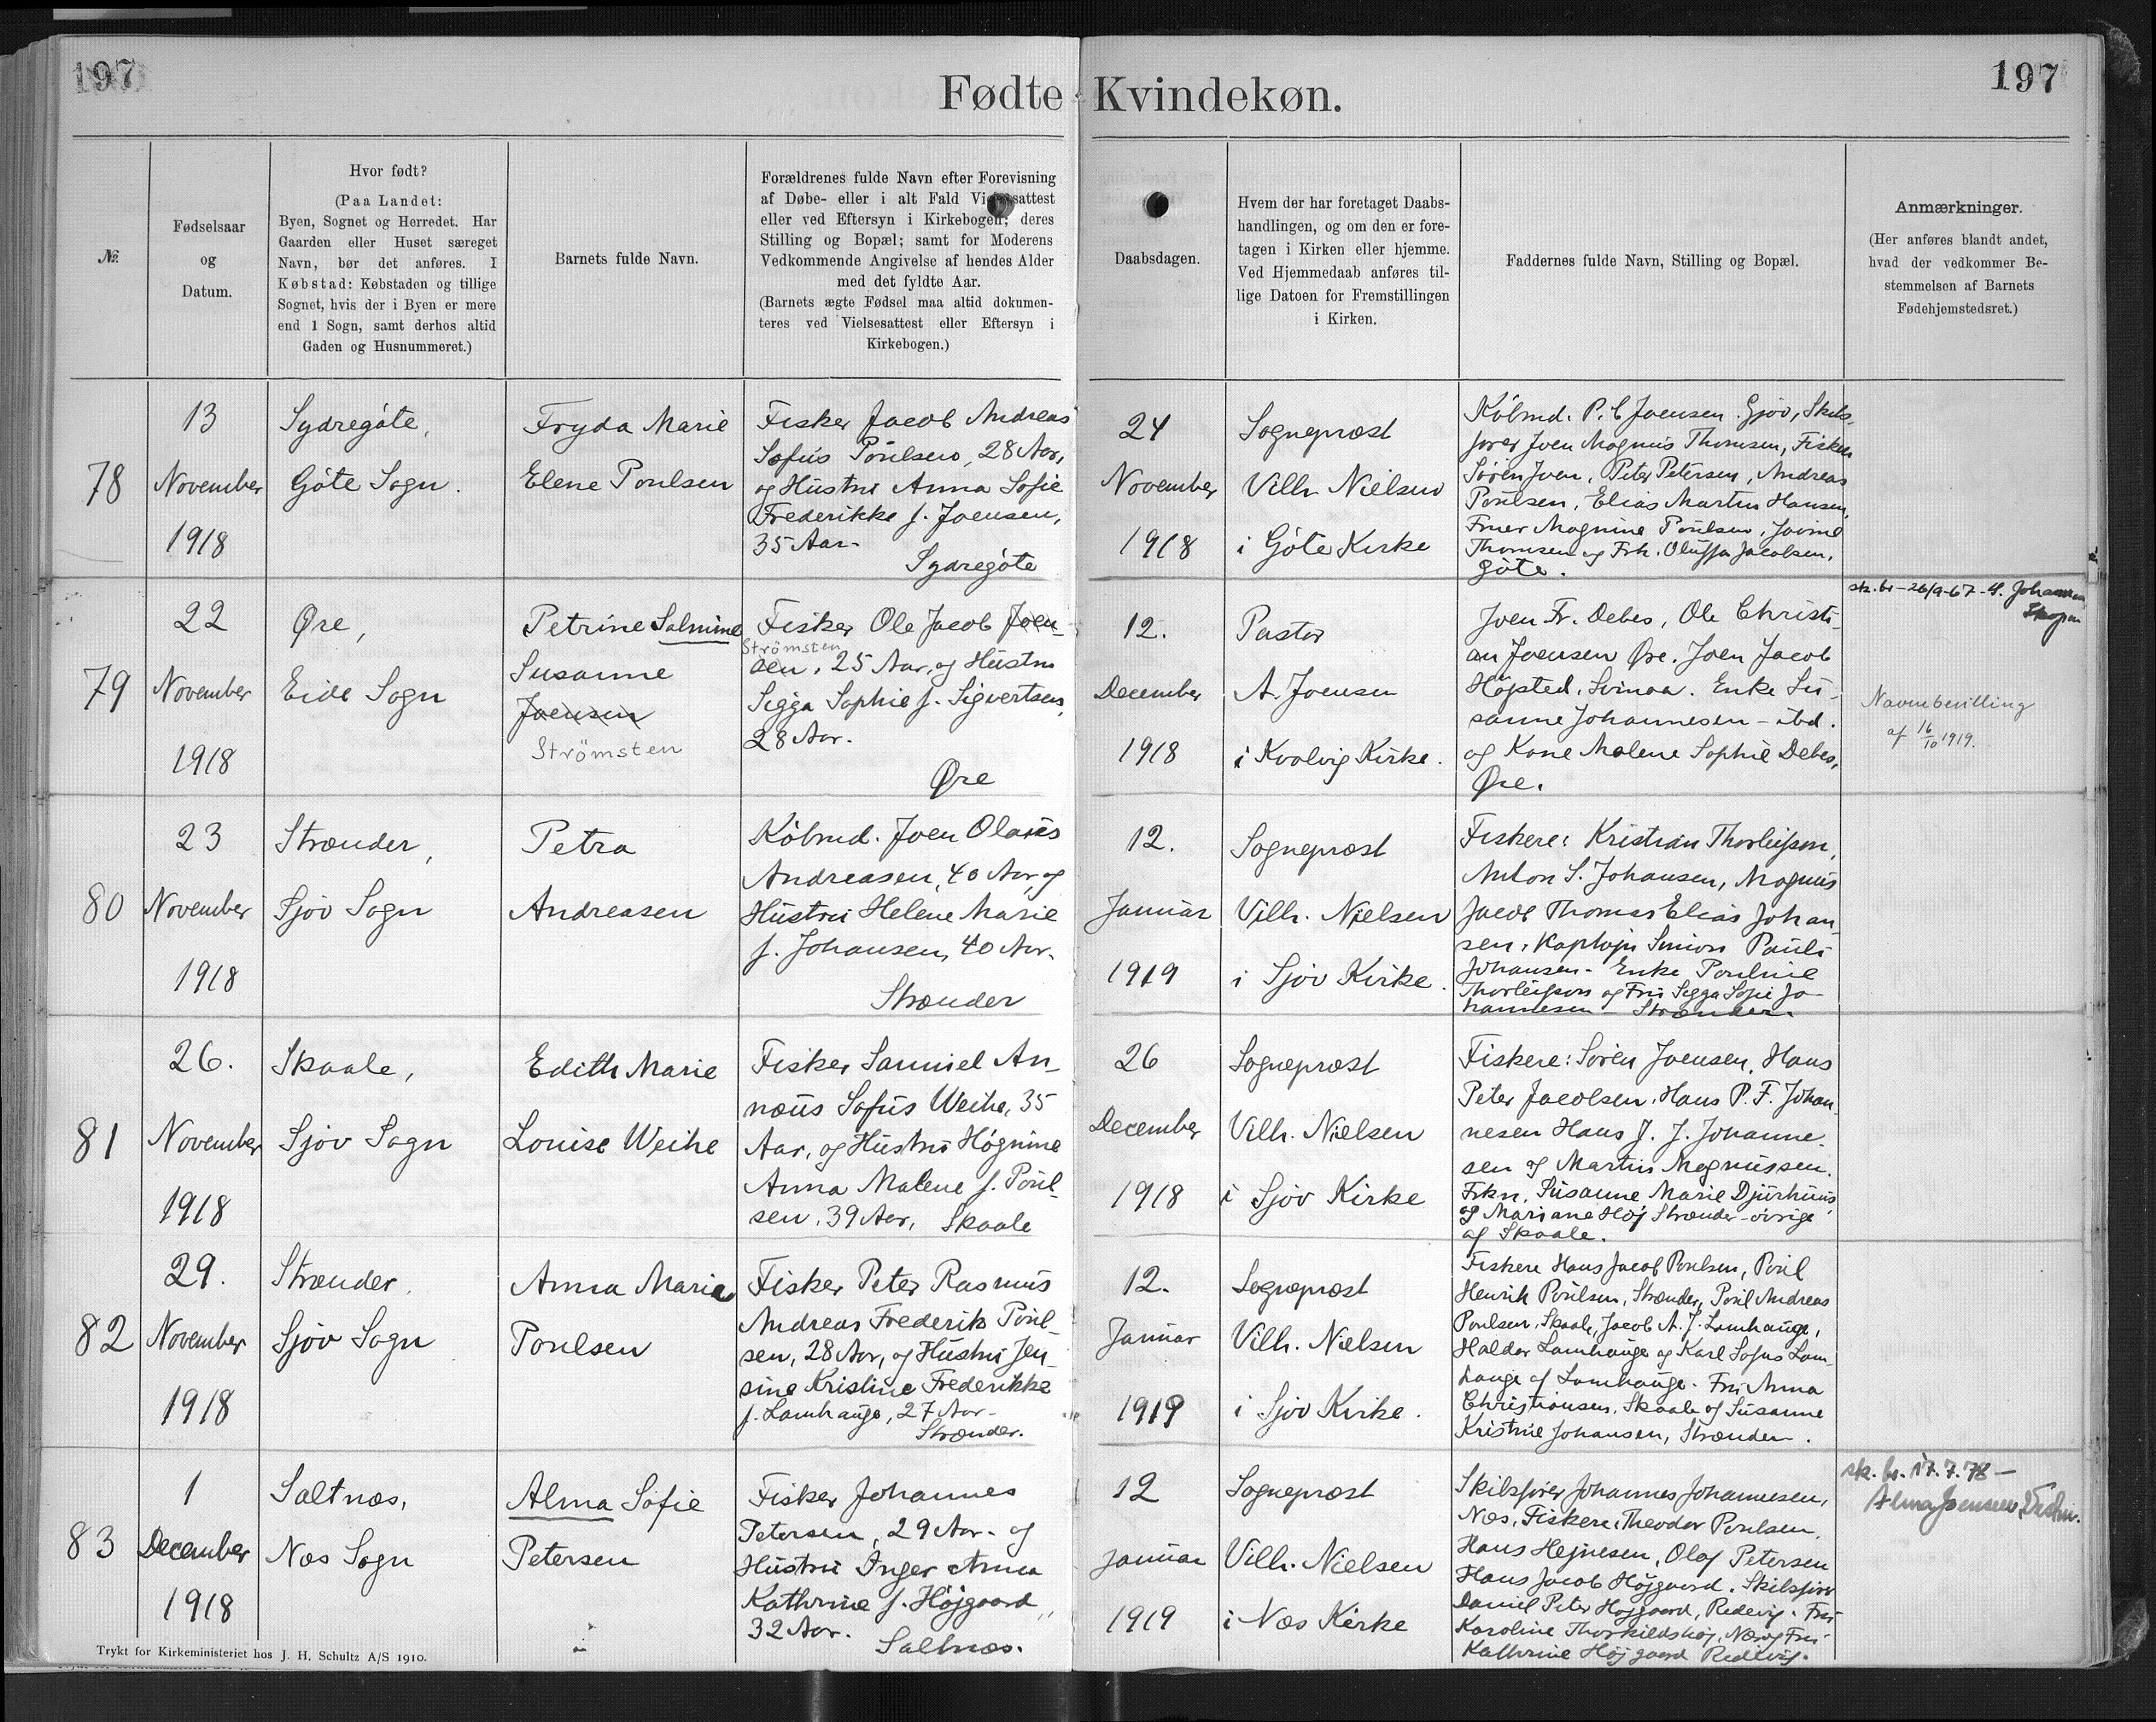 197
197
Fødte Kvindekøn.
№
Fødselsaar
og
Datum.
Hvor født?
(Paa Landet:
Byen, Sognet og Herredet. Har
Gaarden eller Huset særeget
Navn, bør det anføres. I
Købstad: Købstaden og tillige
Sognet, hvis der i Byen er mere
end 1 Sogn, samt derhos altid
Gaden og Husnummeret.)
Barnets fulde Navn.
Forældrenes fulde Navn efter Forevisning
af Døbe- eller i alt Fald Vielsesattest
eller ved Eftersyn i Kirkebogen; deres
Stilling og Bopæl; samt for Moderens
Vedkommende Angivelse af hendes Alder
med det fyldte Aar.
(Barnets ægte Fødsel maa altid dokumen-
teres ved Vielsesattest eller Eftersyn i
Kirkebogen.)
Daabsdagen.
Hvem der har foretaget Daabs-
handlingen, og om den er fore-
tagen i Kirken eller hjemme.
Ved Hjemmedaab anføres til-
lige Datoen for Fremstillingen
i Kirken.
Faddernes fulde Navn, Stilling og Bopæl.
Anmærkninger.
(Her anføres blandt andet,
hvad der vedkommer Be-
stemmelsen af Barnets
Fødehjemstedsret.)
78
13
November
1918
Sydregøte,
Gøte Sogn.
Fryda Marie
Elene Poulsen
Fisker Jacob Andreas
Sofus Poulsen, 28 Aar,
og Hustru Anna Sofie
Frederikke f. Joensen,
35 Aar.
Sydregøte
24
November
1918
Sognepræst
Vilh. Nielsen
i Gøte Kirke
Købmd. P. C Joensen. Gjov, Skibs-
fører Joen Magnus Thomsen, Fiskere
Søren Joen, Peter Petersen, Andreas
Poulsen, Elias Martin Hansen,
Fruer Magnine Poulsen, Jovine
Thomsen og Frk. Oluffa Jacobsen,
Gøte.
79
22
November
1918
Øre,
Eide Sogn
Petrine Salmine
Susanne
Joensen
Strömsten
Fisker Ole Jacob Joen-
Strömsten
sen, 25 Aar, og Hustru
Sigga Sophie f. Sigvertsen,
28 Aar.
Øre
12.
December
1918
Pastor
A. Joensen
i Kvalvig Kirke.
Joen Fr. Debes, Ole Christi-
an Joensen Øre. Joen Jacob
Højsted, Svinaa. Enke Su-
sanne Johannesen - ibd.
og Kone Malene Sophie Debes,
Øre.
sk. br - 26/9-67 - Johannesen
Skopun
Navnebevilling
af 16/10 1919.
80
23
November
1918
Strænder,
Sjov Sogn
Petra
Andreasen
Købmd. Joen Olaus
Andreasen, 40 Aar, og
Hustru Helene Marie
f. Johansen, 40 Aar.
Strænder
12.
Januar
1919
Sognepræst
Vilh. Nielsen
i Sjov Kirke.
Fiskere: Kristian Thorleifson,
Anton S. Johansen, Magnus
Jacob Thomas Elias Johan-
sen, Kaptajn Simon Pauli
Johansen. Enke Pouline
Thorleifson og Fru Sigga Sofie Jo-
hannesen - Strænder.
81
26.
November
1918
Skaale,
Sjov Sogn
Edith Marie
Louise Weihe
Fisker Samuel An-
næus Sofus Weihe, 35
Aar, og Hustru Høgnine
Anna Malene f. Poul-
sen, 39 Aar, Skaale
26
December
1918
Sognepræst
Vilh. Nielsen
i Sjov Kirke
Fiskere: Søren Joensen, Hans
Peter Jacobsen, Hans P. F. Johan-
nesen Hans J. J. Johanne-
sen og Martin Magnussen.
Frkn. Susanne Marie Djurhuus
og Mariane Høj Strænder - øvrige
af Skaale.
82
29.
November
1918
Strænder,
Sjov Sogn
Anna Marie
Poulsen
Fisker Peter Rasmus
Andreas Frederik Poul-
sen, 28 Aar, og Hustru Jen-
sine Kristine Frederikke
f. Lamhauge, 27 Aar.
Strænder.
12.
Januar
1919
Sognepræst
Vilh. Nielsen
i Sjov Kirke.
Fiskere Hans Jacob Poulsen, Poul
Henrik Poulsen, Strænder, Poul Andreas
Poulsen, Skaale, Jacob A. J. Lamhauge,
Haldor Lamhauge og Karl Sofus Lam-
hauge af Lamhauge. Fru Anna
Christiansen, Skaale og Susanne
Kristine Johansen, Strænder.
83
1
December
1918
Saltnæs,
Næs Sogn
Alma Sofie
Petersen
Fisker Johannes
Petersen, 29 Aar. og
Hustru Inger Anna
Kathrine f. Højgaard,
32 Aar.
Saltnæs.
12
Januar
1919
Sognepræst
Vilh. Nielsen
i Næs Kirke
Skibsfører Johannes Johannesen,
Næs, Fiskere: Theodor Poulsen,
Hans Hejnesen, Olaf Petersen
Hans Jacob Højgaard. Skibsfører
Daniel Peter Højgaard, Redevig. Fru
Karoline Thorkildshøj, Næs og Fru
Kathrine Højgaard Redevig.
sk. br. 17.7.78 -
Alma Joensen,
Trykt for Kirkeministeriet hos J. H. Schultz A/S 1910.